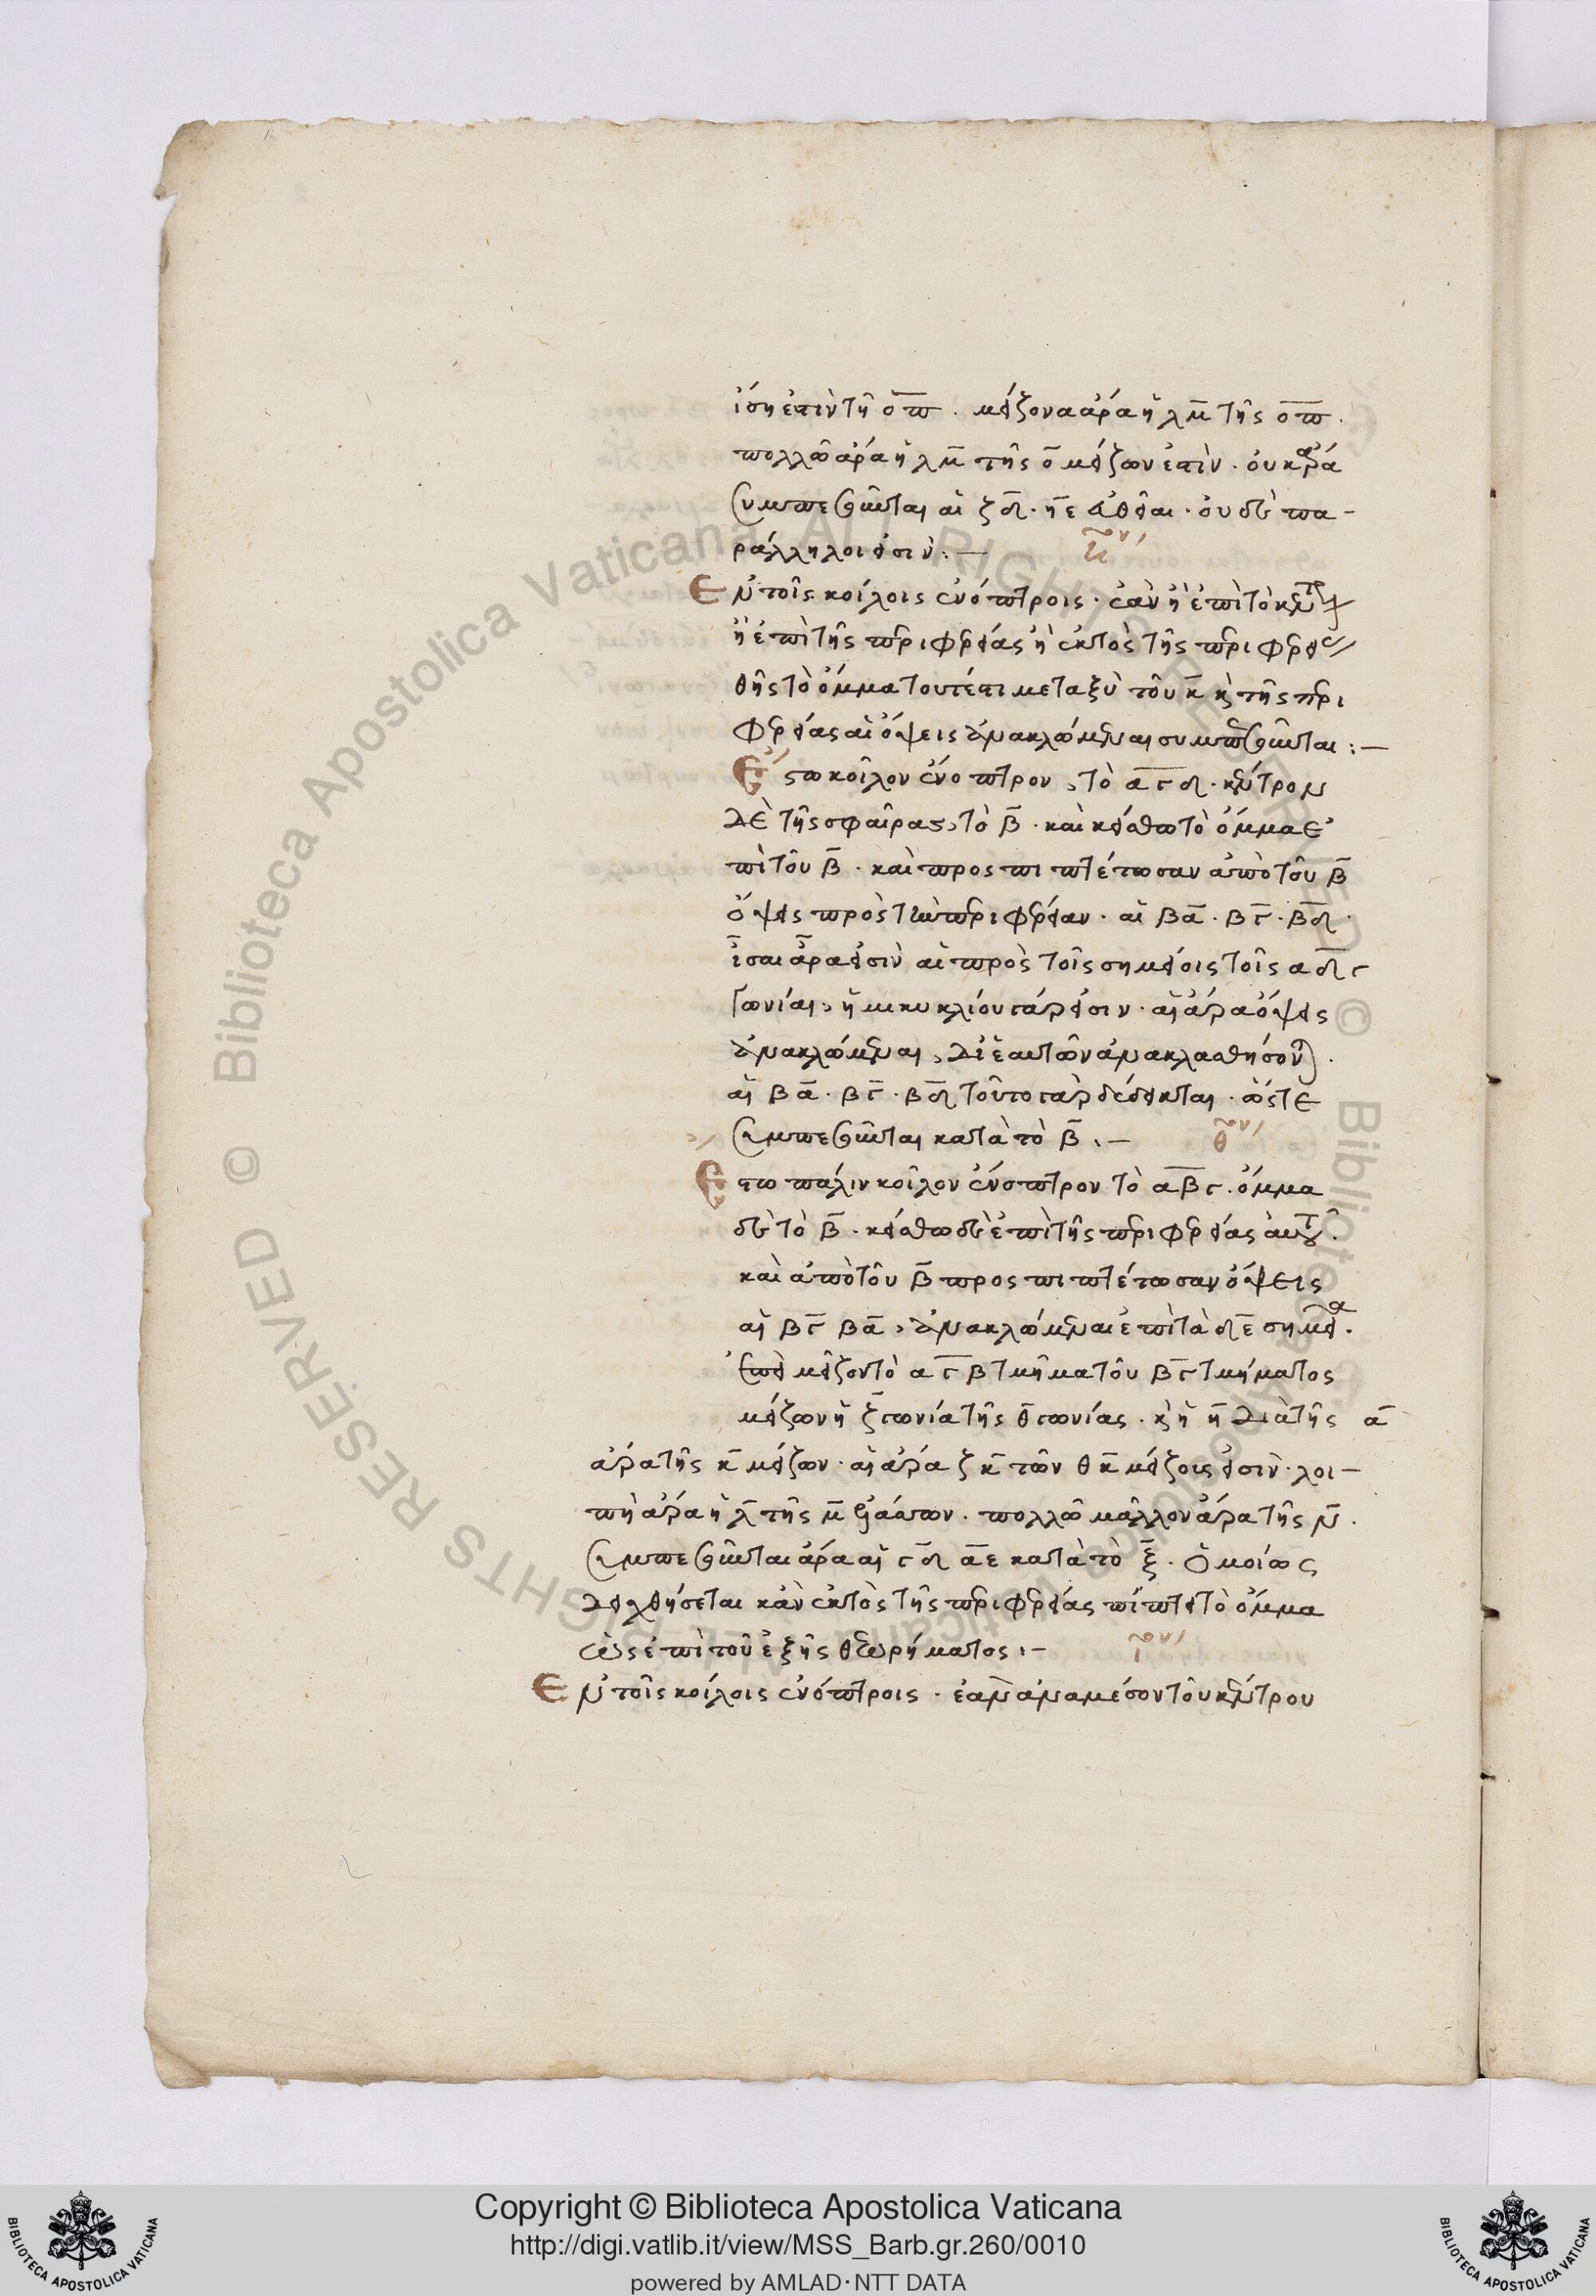 ἴση ἐστὶν τῆ ο̅π̅. μείζον ἄρα ἡ λ̅μ̅ τῆς ο̅π̅.
πολλῶ ἄρα ἡ λ̅μ̅ τῆς ο̅ μείζων ἐστὶν. οὐκ ἄρα
συμπεσοῦνται αἱ ζ̅δ̅. η̅ε̅ εὐθεῖαι. οὐδὲ πα-
ράλληλοι εἰσὶν:—
Ἐν τοῖς κοίλοις ἐνόπτροις. ἐὰν ἢ ἐπὶ τὸ κέντρον
ἢ ἐπὶ τῆς περιφερείας ἢ ἐκτὸς τῆς περιφερείας
θῆς τὸ ὄμμα τουτέστι μεταξὺ τοῦ κ̅ καὶ τῆς περι
φερείας αἱ ὄψεις ἀνακλώμεναι συμπεσοῦνται:—
Ἔστω κοῖλον ἔνοπτρον, τὸ α̅γ̅δ̅. κέντρον
δὲ τῆς σφαῖρας, τὸ β̅. καὶ κείσθω τὸ ὄμμα ἐ
πὶ τοῦ β̅. καὶ προσπιπτέτωσαν ἀπὸ τοῦ β̅
ὄψεις πρὸς τὴν περιφέρειαν. αἱ β̅α̅. β̅γ̅. β̅δ̅.
ἴσαι ἄρα εἰσὶν αἱ πρὸς τοῖς σημείοις τοῖς α̅δ̅γ̅
γωνίαι, ἡμικυκλίου γάρ εἰσιν. αἱ ἄρα ὄψεις
ἀνακλώμεναι, δι' ἑαυτῶν ἀνακλασθήσονται.
αἱ β̅α̅. β̅γ̅. β̅δ̅ τοῦτο γὰρ δέδεικται. ὥστε
συμπεσοῦνται κατὰ τὸ β̅:—
θον
Ἔστω πάλιν κοῖλον ἔνοπτρον τὸ α̅β̅γ̅. ὄμμα
δὲ τὸ β̅. κείσθω δὲ ἐπὶ τῆς περιφερείας αὐτοῦ.
καὶ ἀπὸ τοῦ β̅ προσπιπτέτωσαν ὄψεις
αἱ β̅γ̅ β̅α̅, ἀνακλώμεναι ἐπὶ τὰ δ̅ε̅ σημεῖα.
ἐπεὶ μεῖζον τὸ α̅γ̅β̅ τμῆμα τοῦ β̅γ̅ τμήματος
μείζων ἡ ζ̅ γωνία τῆς θ̅ γωνίας. καὶ ἡ η̅ διὰ τῆς α̅
ἄρα τῆς κ̅ μείζων. αἱ ἄρα ζ̅η̅ τῶν θ̅κ̅ μείζους εἰσὶν. λοι-
πὴ ἄρα ἡ λ̅ τῆς μ̅ ἐλάττων. πολλῶ μᾶλλον ἄρα τῆς ν̅.
συμπεσοῦνται ἄρα αἱ γ̅δ̅ α̅ε̅ κατὰ τὸ ξ̅. ὁμοίως
δειχθήσεται κἂν ἐκτὸς τῆς περιφερείας πίπτει τὸ ὄμμα
ὡς ἐπὶ τοῦ ἑξῆς θεωρήματος:—
Ἐν τοῖς κοίλοις ἐνόπτροις. ἐὰν ἀναμέσον τοῦ κέντρου
Copyright © Biblioteca Apostolica Vaticana
http://digi.vatlib.it/view/MSS_Barb.gr.260/0010
powered by AMLAD·NTT DATA
© Biblioteca Apostolica Vaticana ALL RIGHTS RESERVED
BIBLIOTECA APOSTOLICA VATICANA
BIBLIOTECA APOSTOLICA VATICANA